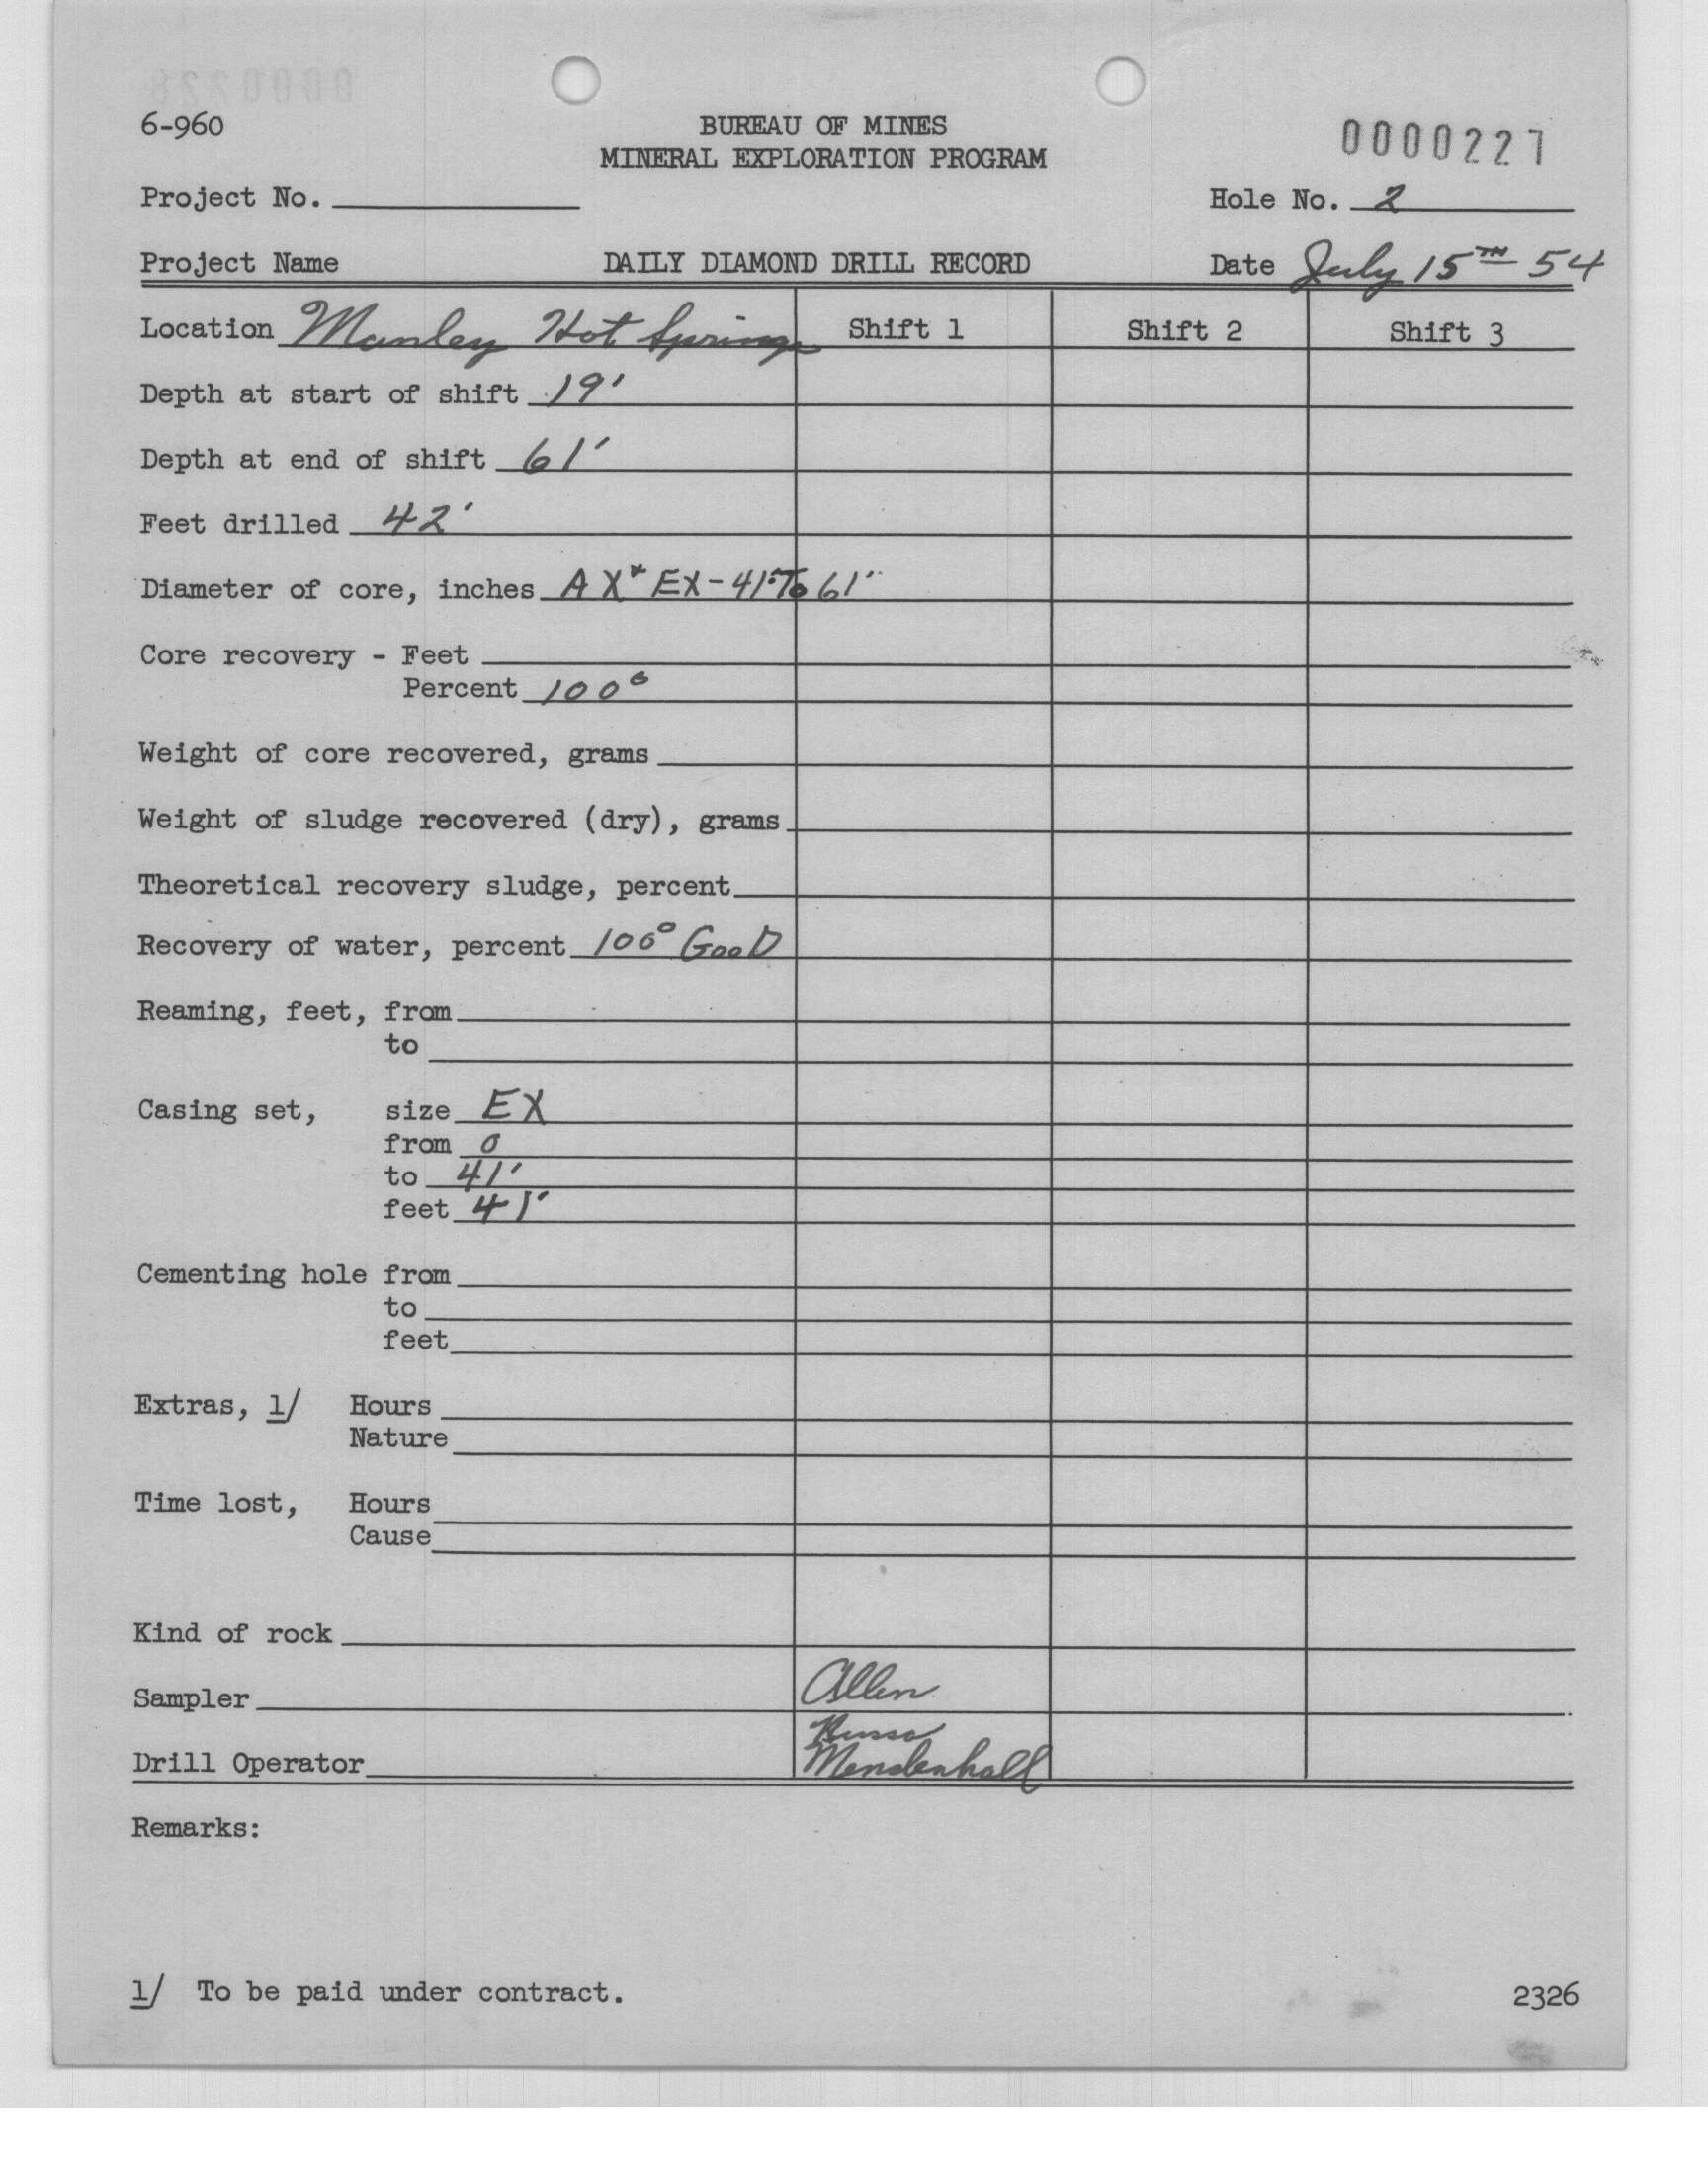 6-960
BUREAU OF MINES
MINERAL EXPLORATION PROGRAM
0000227
Project No.
Hole No. 2
Project Name
DAILY DIAMOND DRILL RECORD
Date July 15TH 54
Location Manley Hot Springs
Shift 1
Shift 2
Shift 3
Depth at start of shift 19'
Depth at end of shift 61'
Feet drilled 42'
Diameter of core, inches AX" EX-41' To 61'
Core recovery - Feet
Percent 100°
Weight of core recovered, grams
Weight of sludge recovered (dry), grams
Theoretical recovery sludge, percent
Recovery of water, percent 100° GooD
Reaming, feet, from
to
Casing set, size EX
from 0
to 41'
feet 41'
Cementing hole from
to
feet
Extras, 1/ Hours
Nature
Time lost, Hours
Cause
Kind of rock
Sampler Allen
Drill Operator
Mendenhall
Remarks:
1/ To be paid under contract.
2326